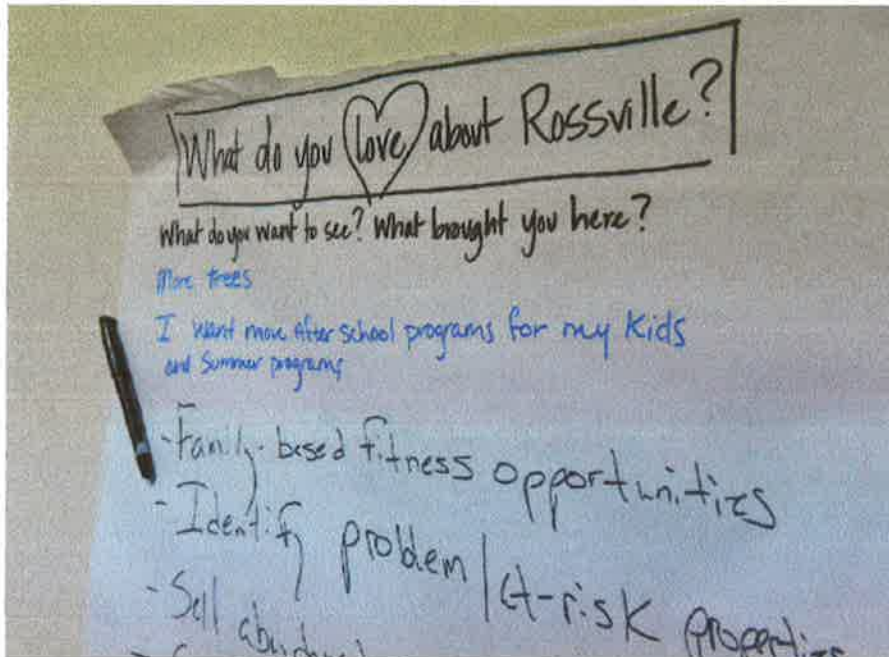 What do you love about Rossville?
What do you want to see? What brought you here?
More trees
I want more After school programs for my Kids
and Summer programs
- Family-based fitness opportunities
- Identify problem/at-risk properties
- Sell abandoned